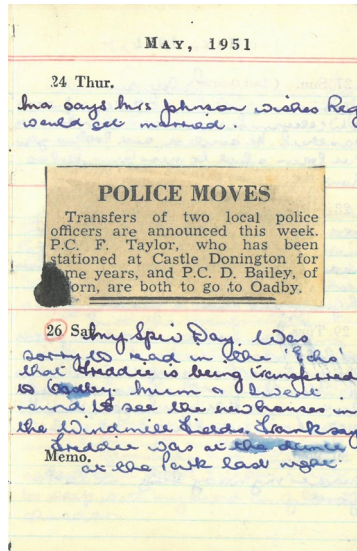 MAY, 1951
24 Thur.
Ma says Mrs Johnson wishes Reg
would get married.
POLICE MOVES
Transfers of two local police
officers are announced this week.
P.C. F. Taylor, who has been
stationed at Castle Donington for
some years, and P.C. D. Bailey, of
orn, are both to go to Oadby.
26 Sat. My Day. Was
sorry to read in the 'Echo'
that Freddie is being transferred
to Oadby. Mum & I went
round to see the new houses in
the Windmill Fields. Frank says
Freddie was at the dance
Memo.
at the Park last night